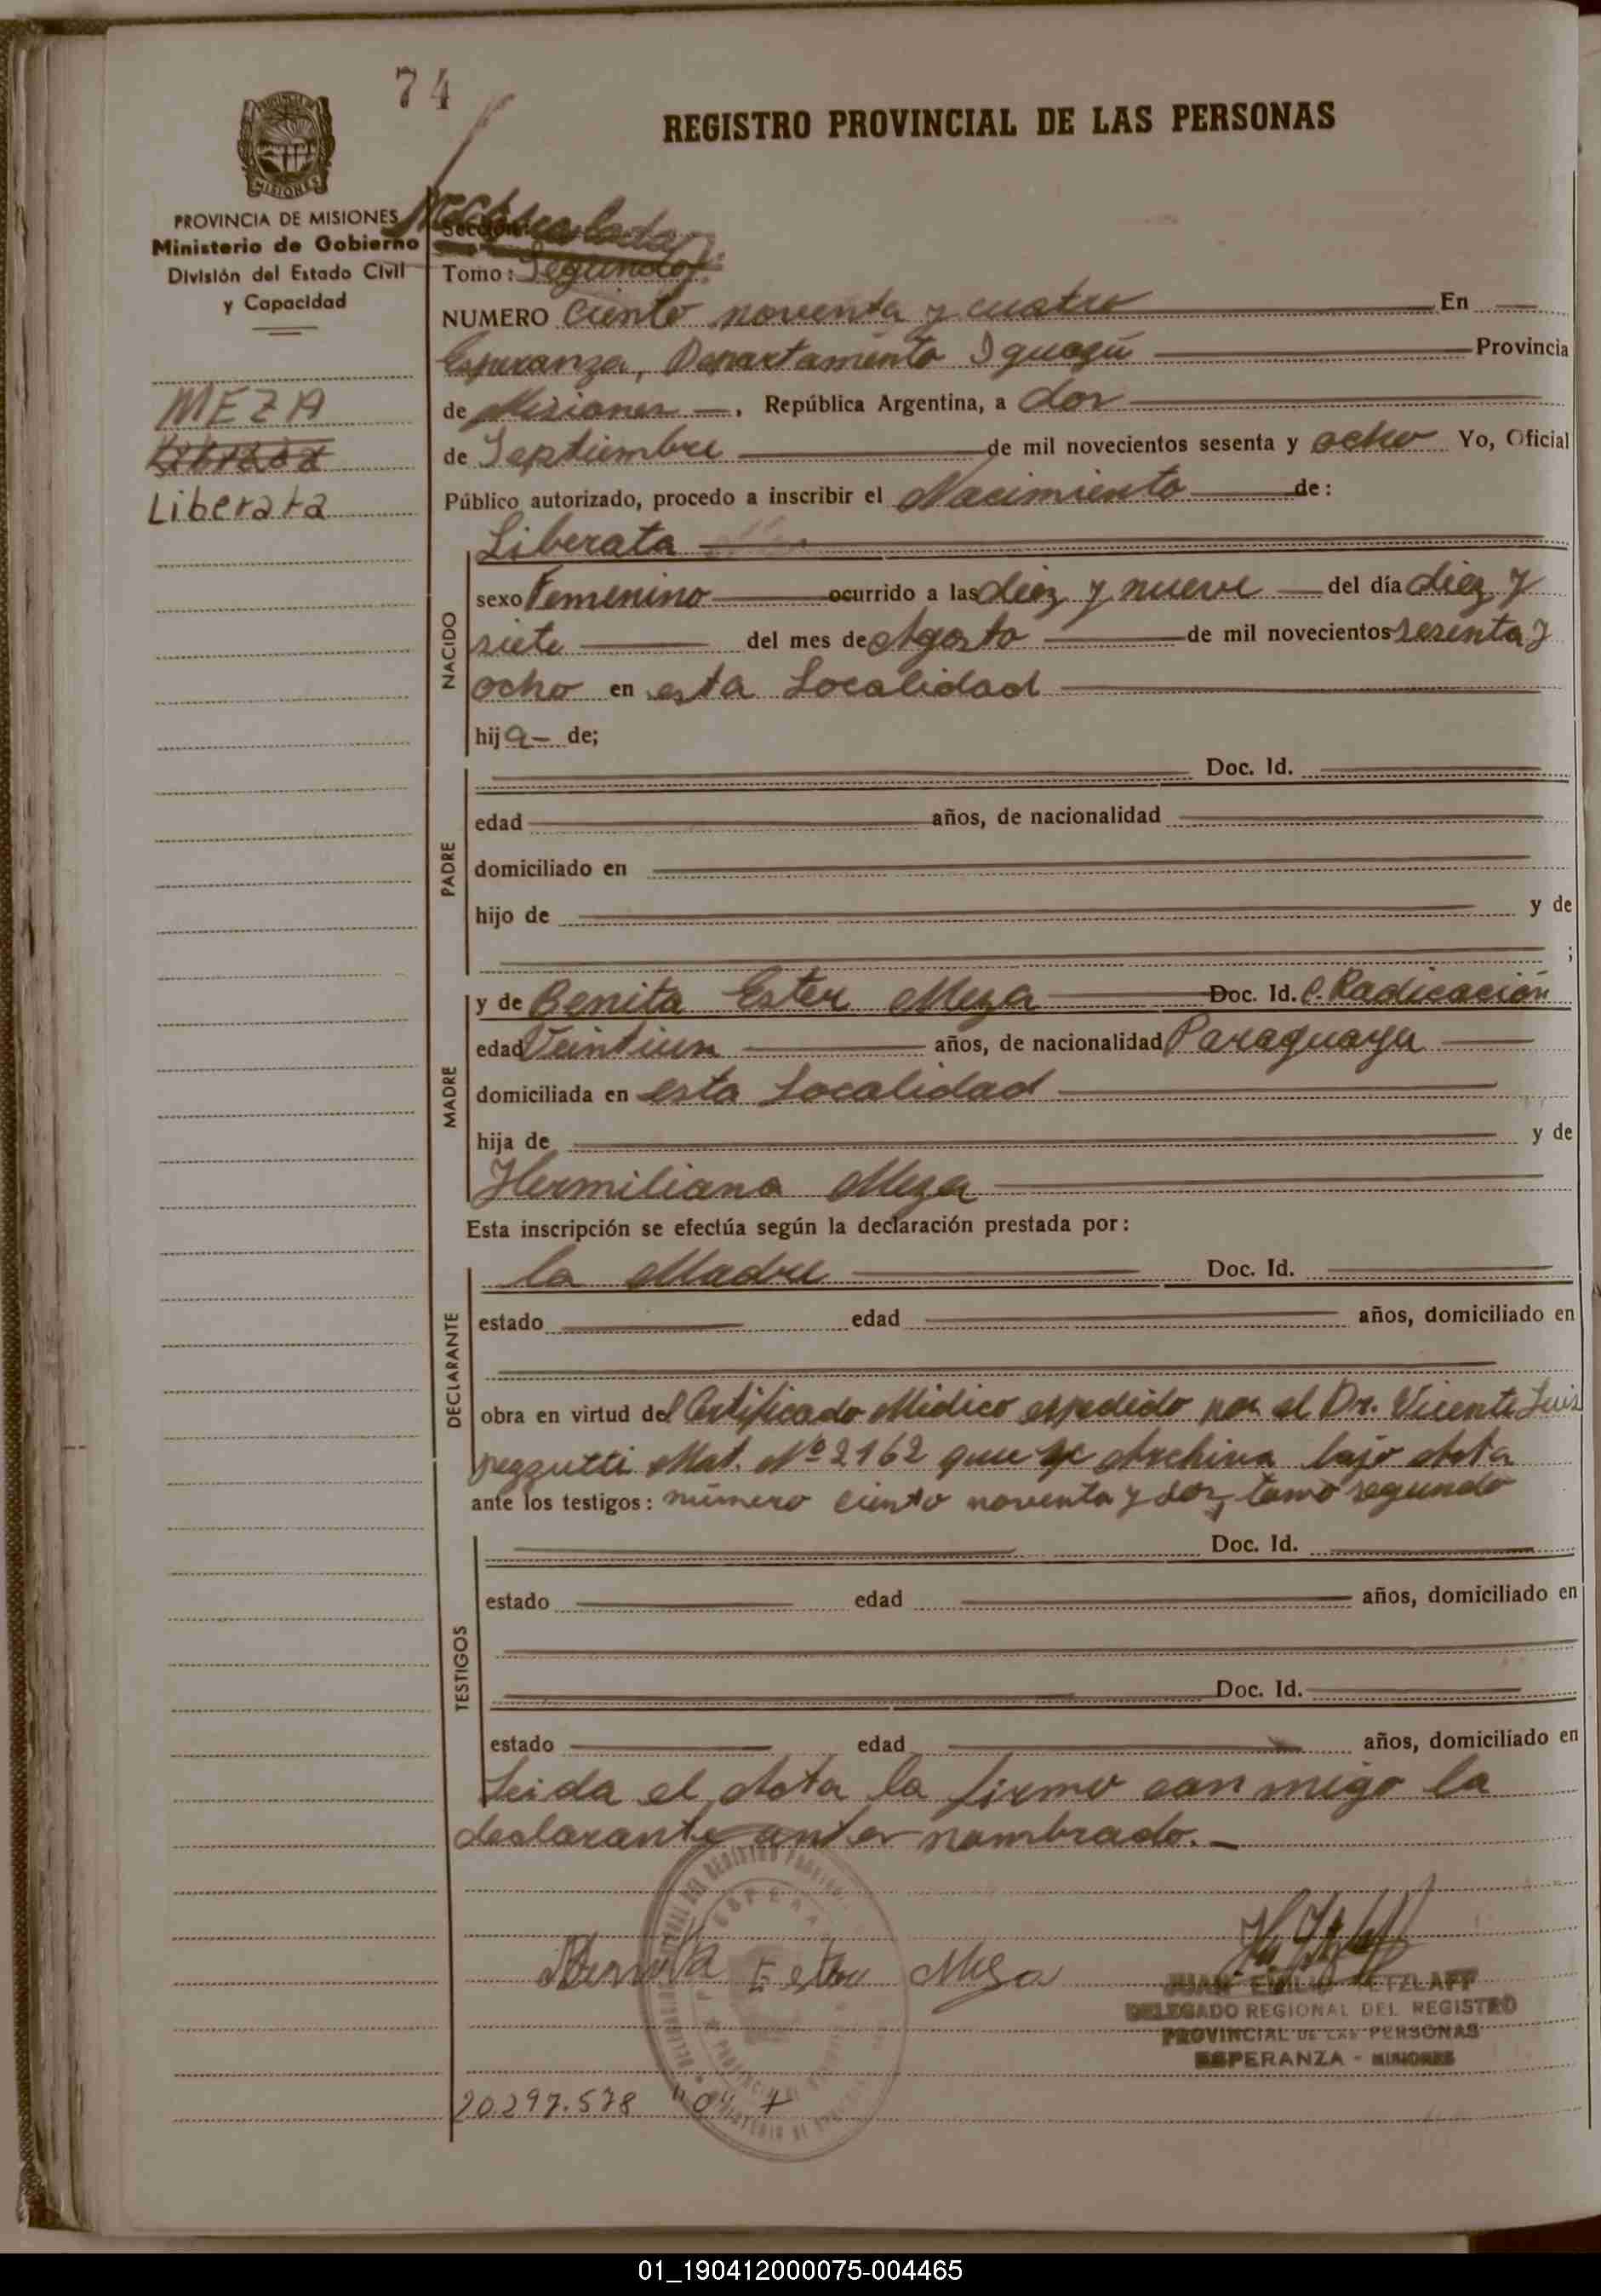 74
REGISTRO PROVINCIAL DE LAS PERSONAS
MISIONES
PROVINCIA DE MISIONES
Ministerio de Gobierno
División del Estado Civil
y Capacidad
Sección:
Tomo: Segundo
NUMERO Ciento noventa y cuatro En
Esperanza, Departamento Iguazú Provincia
de Misiones. República Argentina, a dos
de Septiembre de mil novecientos sesenta y ocho Yo, Oficial
Público autorizado, procedo a inscribir el Nacimiento de:
MEZA
Liberata
NACIDO
Liberata
sexo Femenino ocurrido a las diez y nueve del día diez y
siete del mes de Agosto de mil novecientos sesenta y
ocho en esta Localidad
hija de;
PADRE
Doc. Id.
edad años, de nacionalidad
domiciliado en
hijo de y de
;
MADRE
y de Benita Ester Meza Doc. Id. C. Radicación
edad Veintiun años, de nacionalidad Paraguaya
domiciliada en esta Localidad
hija de y de
Hermiliana Meza
Esta inscripción se efectúa según la declaración prestada por:
DECLARANTE
la Madre Doc. Id.
estado edad años, domiciliado en
obra en virtud del Certificado Médico expedido por el Dr. Vicente Luis
Pezzutti Mat. Nº 2162 que se Archiva bajo Acta
ante los testigos: número ciento noventa y dos, tomo segundo
TESTIGOS
Doc. Id.
estado edad años, domiciliado en
Doc. Id.
estado edad años, domiciliado en
Leida el Acta la firmo con migo la
declarante antes nombrado.
Benita Ester Mesa
JUAN EMILIO RETZLAFF
DELEGADO REGIONAL DEL REGISTRO
PROVINCIAL DE LAS PERSONAS
ESPERANZA - MISIONES
20.297.578 "0" 7
01_190412000075-004465